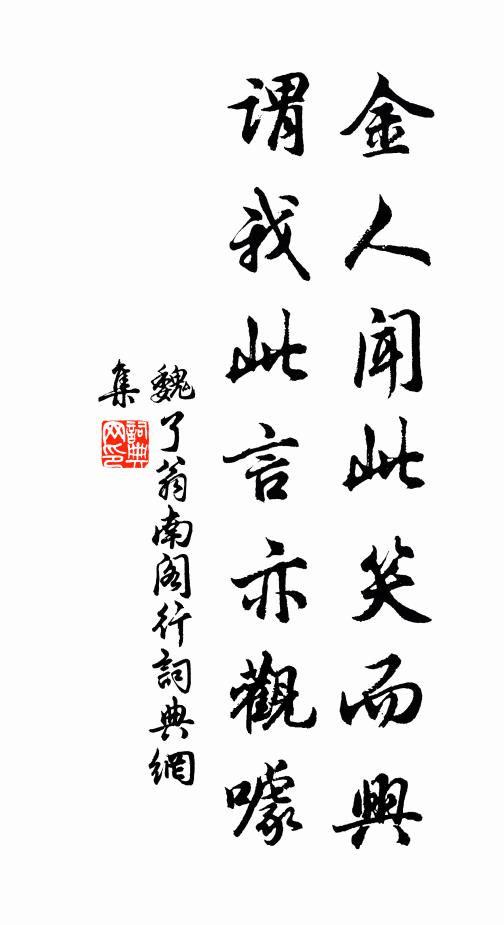 金人闻此笑而興
谓我此言亦觀噱
魏了翁南阁行詞典網
集
詞典网印